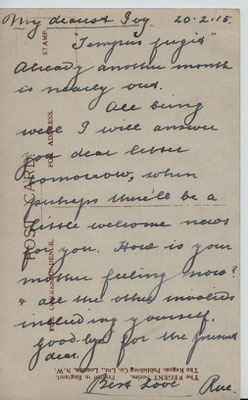 My dearest Ivy 20.2.15.
"Tempus fugit"
Already another month
is nearly out.
All being
well I will answer
you dear letter
tomorrow, when
perhaps there'll be a
little welcome news
for you. How is your
mother feeling now?
& all the other invalids
including yourself.
Good-bye for the present
dear.
Best Love
POST CARD
FOR CORRESPONDENCE.
STAMP.
FOR ADDRESS.
The REGENT Series. Printed in England.
The Regent Publishing Co Ltd., London, N.W.